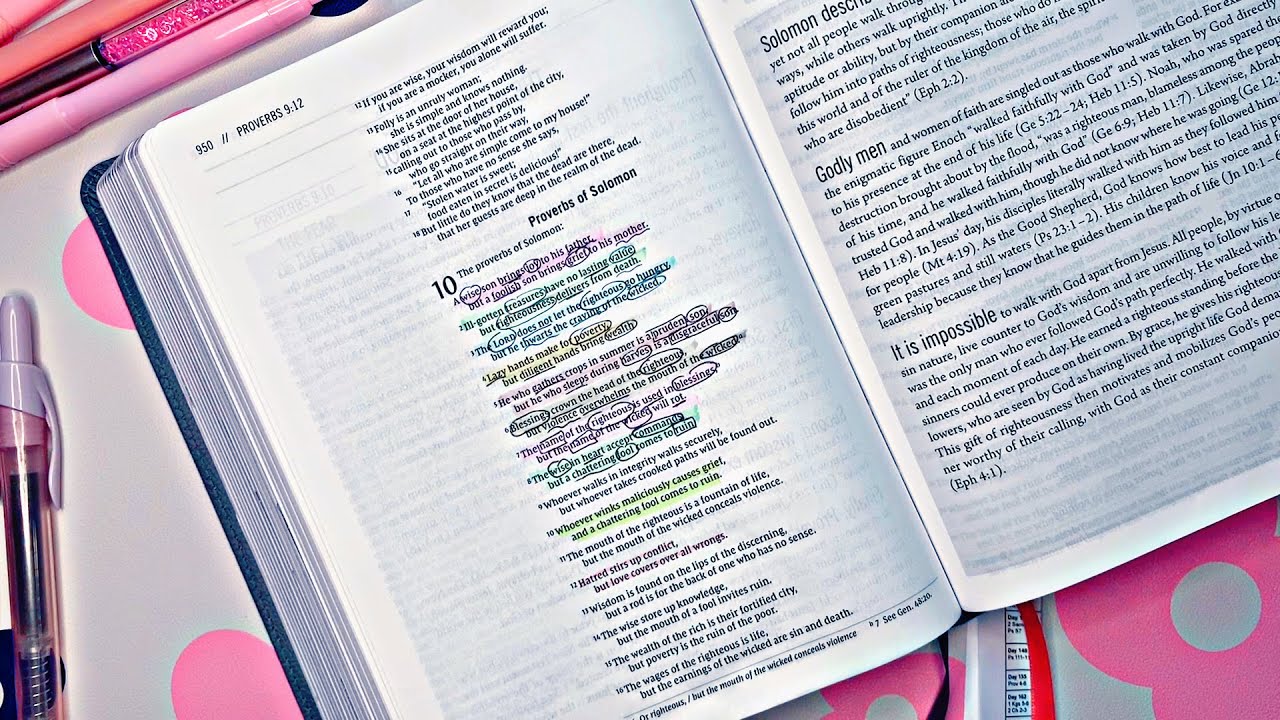 950 // PROVERBS 9:12
12 If you are wise, your wisdom will reward you;
if you are a mocker, you alone will suffer.
13 Folly is an unruly woman;
she is simple and knows nothing.
14 She sits at the door of her house,
on a seat at the highest point of the city,
15 calling out to those who pass by,
who go straight on their way,
16 "Let all who are simple come to my house!"
To those who have no sense she says,
17 "Stolen water is sweet;
food eaten in secret is delicious!"
18 But little do they know that the dead are there,
that her guests are deep in the realm of the dead.
Proverbs of Solomon
10 The proverbs of Solomon:
A wise son brings joy to his father,
but a foolish son brings grief to his mother.
2 Ill-gotten treasures have no lasting value,
but righteousness delivers from death.
3 The LORD does not let the righteous go hungry,
but he thwarts the craving of the wicked.
4 Lazy hands make for poverty,
but diligent hands bring wealth.
5 He who gathers crops in summer is a prudent son,
but he who sleeps during harvest is a disgraceful son.
6 Blessings crown the head of the righteous,
but violence overwhelms the mouth of the wicked.
7 The name of the righteous is used in blessings,
but the name of the wicked will rot.
8 The wise in heart accept commands,
but a chattering fool comes to ruin.
9 Whoever walks in integrity walks securely,
but whoever takes crooked paths will be found out.
10 Whoever winks maliciously causes grief,
and a chattering fool comes to ruin.
11 The mouth of the righteous is a fountain of life,
but the mouth of the wicked conceals violence.
12 Hatred stirs up conflict,
but love covers over all wrongs.
13 Wisdom is found on the lips of the discerning,
but a rod is for the back of one who has no sense.
14 The wise store up knowledge,
but the mouth of a fool invites ruin.
15 The wealth of the rich is their fortified city,
but poverty is the ruin of the poor.
16 The wages of the righteous is life,
but the earnings of the wicked are sin and death.
Or righteous, / but the mouth of the wicked conceals violence b 7 See Gen. 48:20.
Solomon
yet not all people walk through
ways, while others walk uprightly. Th
aptitude or ability, but by their companion and
follow him into paths of righteousness; those who do no
this world and of the ruler of the kingdom of the air, the spiri
who are disobedient" (Eph 2:2).
Godly men and women of faith are singled out as those who walk with God. For ex
the enigmatic figure Enoch "walked faithfully with God" and was taken by God directly
to his presence at the end of his life (Ge 5:22–24; Heb 11:5). Noah, who was spared th
destruction brought about by the flood, "was a righteous man, blameless among the peop
of his time, and he walked faithfully with God" (Ge 6:9; Heb 11:7). Likewise, Abrah
trusted God and walked with him, though he did not know where he was going (Ge 12:
Heb 11:8). In Jesus' day, his disciples literally walked with him as they followed him
for people (Mt 4:19). As the Good Shepherd, God knows how best to lead his p
green pastures and still waters (Ps 23:1–2). His children know his voice and
leadership because they know that he guides them in the path of life (Jn 10:1–
It is impossible to walk with God apart from Jesus. All people, by virtue o
sin nature, live counter to God's wisdom and are unwilling to follow his le
was the only man who ever followed God's path perfectly. He walked with
and each moment of each day. He earned a righteous standing before
sinners could ever produce on their own. By grace, he gives his righteous
lowers, who are seen by God as having lived the upright life God deman
This gift of righteousness then motivates and mobilizes God's peo
ner worthy of their calling, with God as their constant companio
(Eph 4:1).
Ps 57
Day 148
Ps 111-11
Day 155
Prov 4-6
Day 162
1 Kgs 5-6
2 Ch 2-3